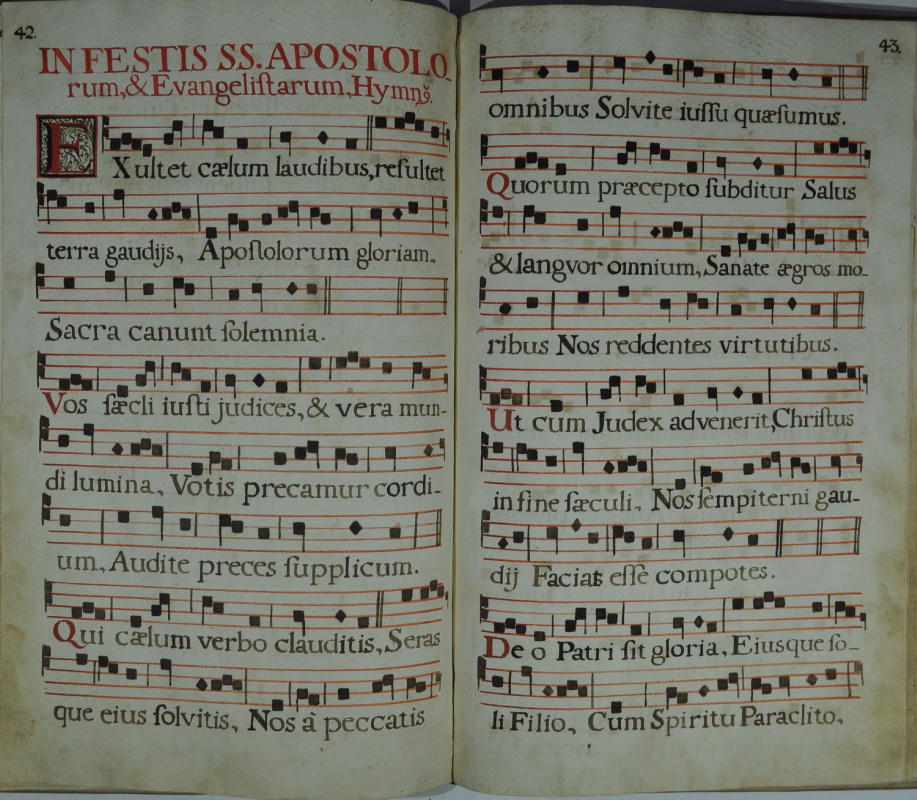 42.
IN FESTIS SS. APOSTOLO_
rum, & Evangeliſtarum, Hymnꝰ.
EXultet cælum laudibus, reſultet
terra gaudijs, Apoſtolorum gloriam,
Sacra canunt ſolemnia.
Vos ſæcli iuſti judices, & vera mun-
di lumina, Votis precamur cordi-
um, Audite preces ſupplicum.
Qui cælum verbo clauditis, Seras
que eius ſolvitis, Nos à peccatis
43.
omnibus Solvite iuſſu quæſumus.
Quorum præcepto ſubditur Salus
& langvor omnium, Sanate ægros mo_
ribus Nos reddentes virtutibus.
Ut cum Judex advenerit, Chriſtus
in fine ſæculi, Nos ſempiterni gau-
dij Facias eſſe compotes.
Deo Patri ſit gloria, Eiusque ſo_
li Filio, Cum Spiritu Paraclito,